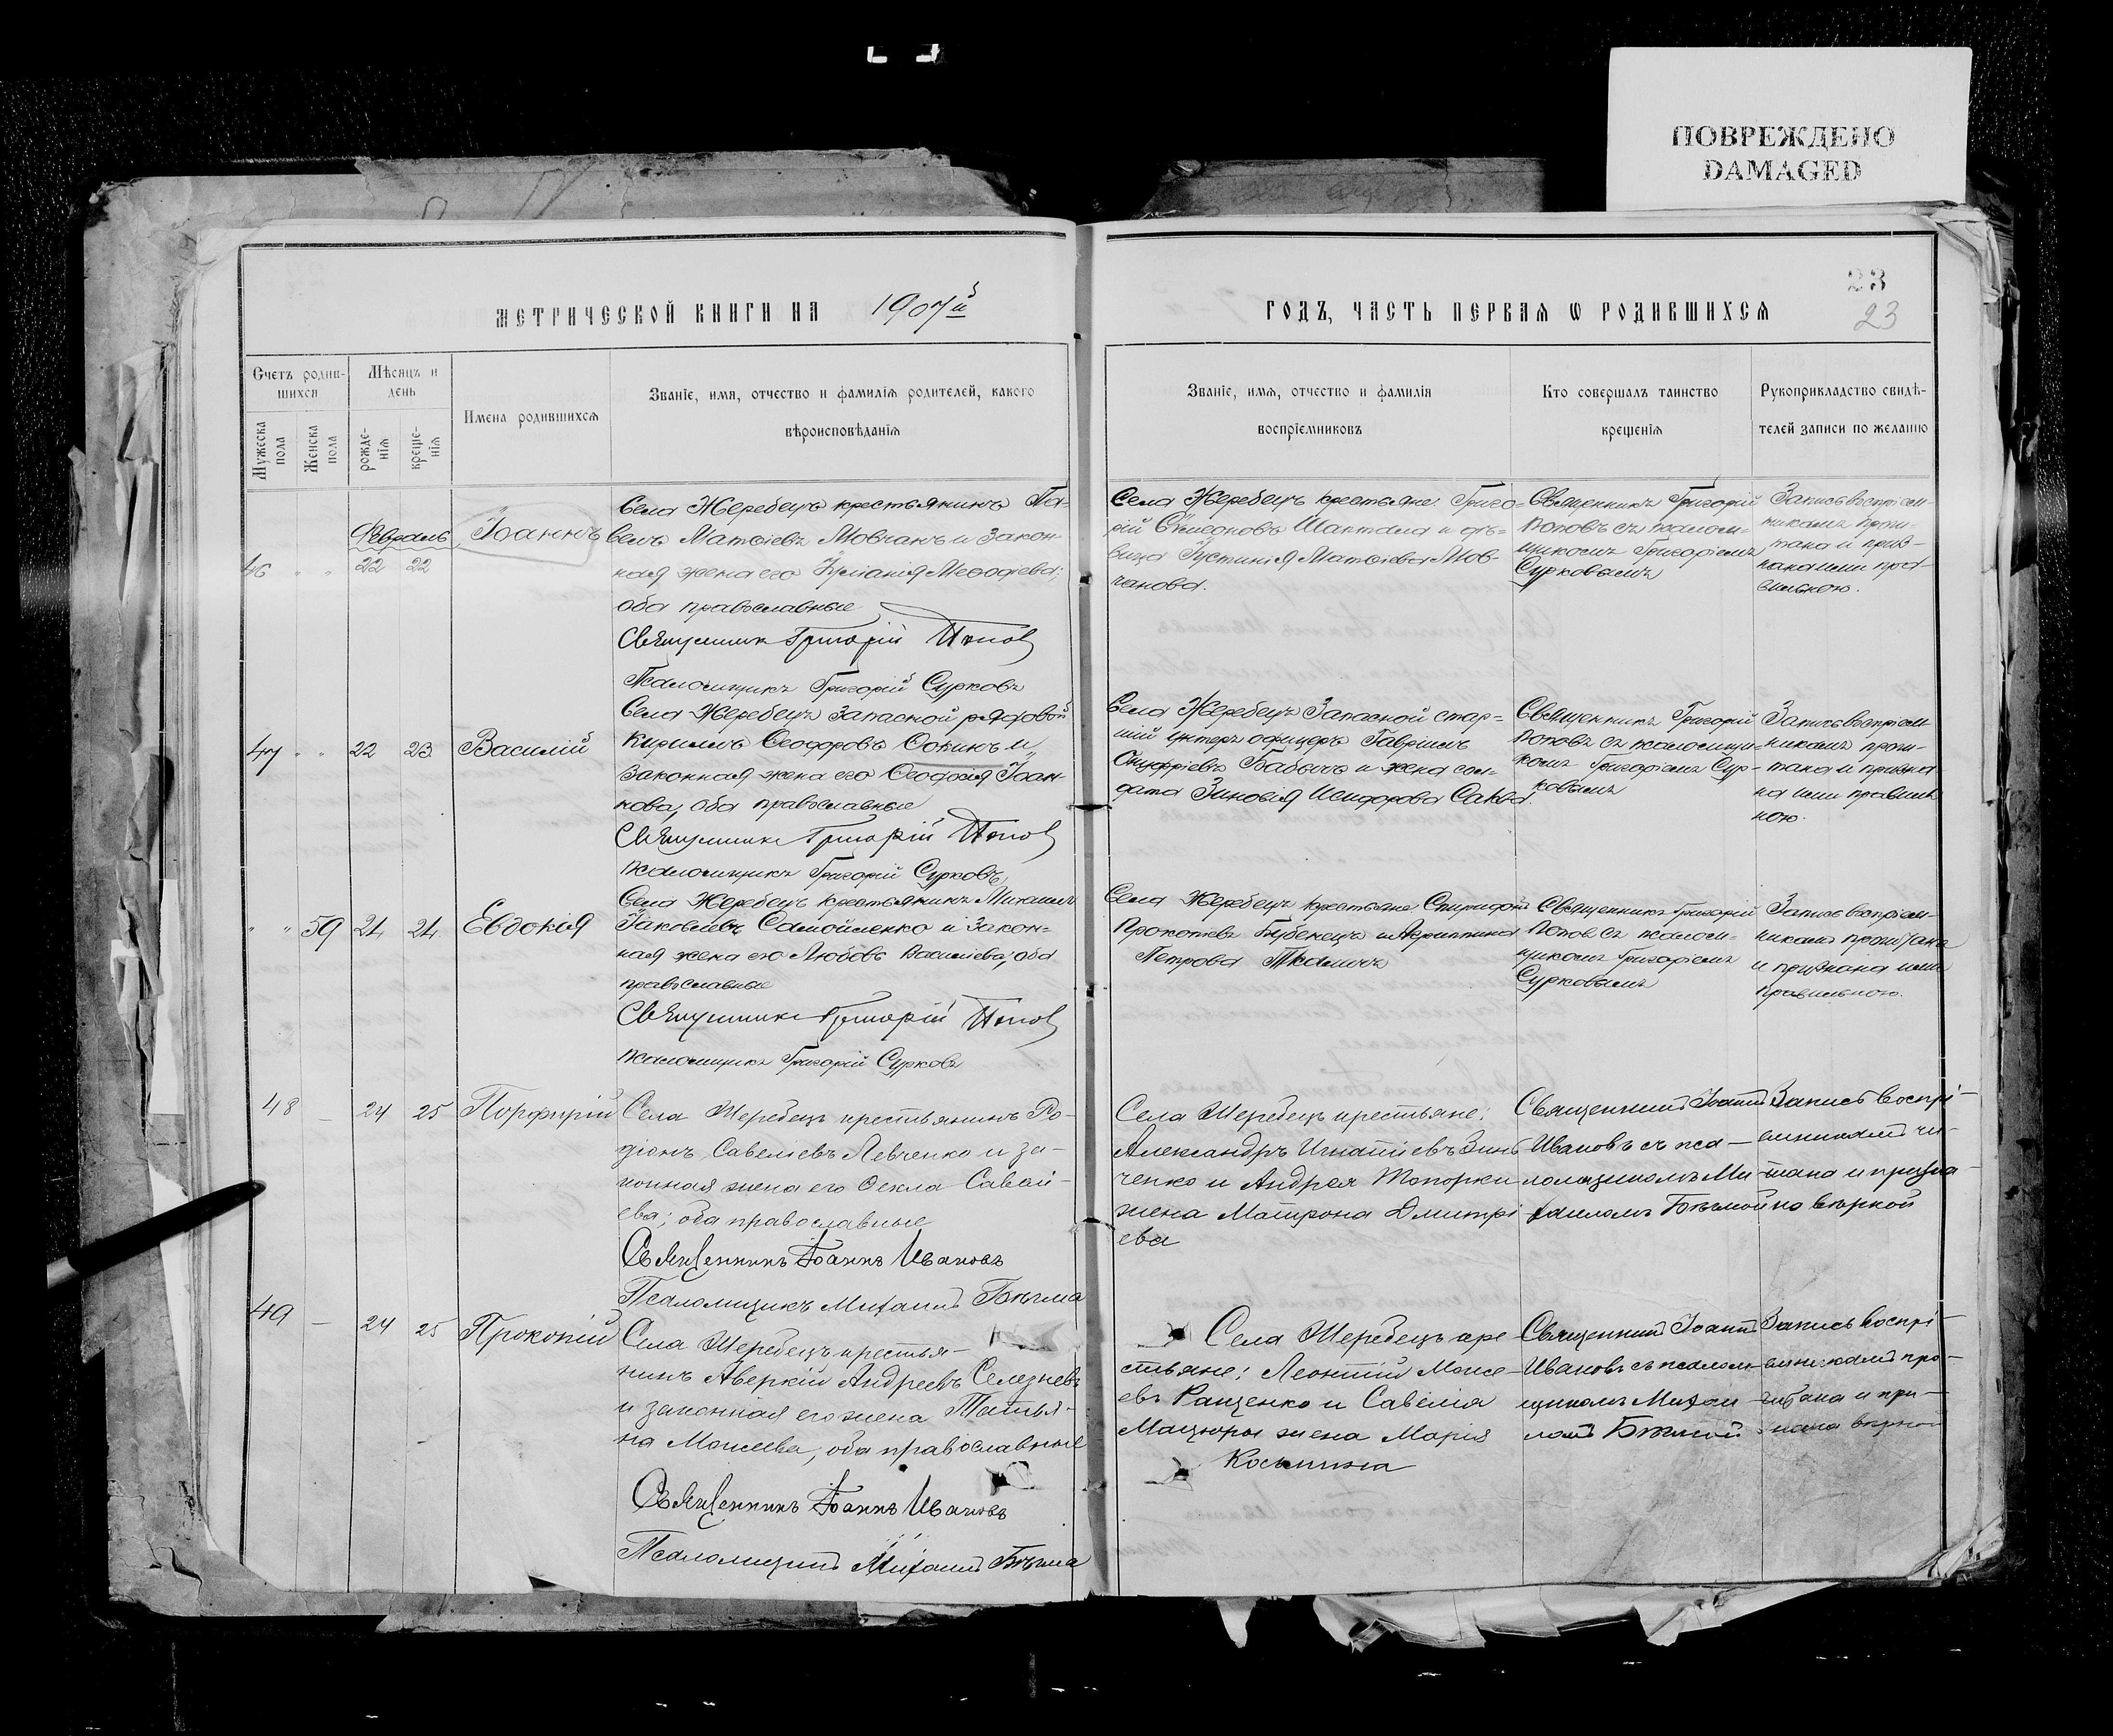 ПОВРЕЖДЕНО
DAMAGED
23
23
МЕТРИЧЕСКОЙ КНИГИ НА 1907й
ГОДЪ, ЧАСТЬ ПЕРВАЯ Ѡ РОДИВШИХСЯ
Счетъ родив-
шихся
Мѣсяцъ и
день
Мужеска
пола
Женска
пола
рожде-
нія
креще-
нія
Имена родившихся
Званіе, имя, отчество и фамилія родителей, какого
вѣроисповѣданія
Званіе, имя, отчество и фамилія
воспріемниковъ
Кто совершалъ таинство
крещенія
Рукоприкладство свидѣ-
телей записи по желанію
Февраль
46 " " 22 22
Іоаннъ
Села Жеребецъ крестьянинъ Па-
велъ Матѳіевъ Мовчанъ и закон-
ная жена его Іуліанія Меѳодіева;
оба православные
Священникъ Григорій Попов
Псаломщикъ Григорій Сурковъ
Села Жеребецъ крестьяне: Григо-
рій Симеоновъ Шаптала и дѣ-
вица Іустинія Матѳіева Мов-
чанова.
Священникъ Григорій
Поповъ съ псалом-
щикомъ Григоріемъ
Сурковымъ
Запись воспріем-
никамъ прочи-
тана и приз-
нана ими пра-
вильною.
47 " " 22 23
Василій
Села Жеребецъ запасной рядовой
Кириллъ Ѳеодоровъ Сокинъ и
законная жена его Ѳеодосія Іоан-
нова, оба православные
Священникъ Григорій Попов
псаломщикъ Григорій Сурковъ
Села Жеребецъ Запасной стар-
шій унтеръ офицеръ Гавріилъ
Онуфріевъ Бабычъ и жена сол-
дата Зиновія Исидорова Саква.
Священникъ Григорій
Поповъ съ псаломщи-
комъ Григоріемъ Сур-
ковымъ
Запись воспріем-
никамъ прочи-
тана и призна-
на ими правиль
ною.
" " 59 24 24
Евдокія
Села Жеребецъ крестьянинъ Михаилъ
Іаковлевъ Самойленко и закон-
ная жена его Любовь Василіева; оба
православные
Священникъ Григорій Попов
псаломщикъ Григорій Сурковъ
Села Жеребецъ крестьяне: Спиридонъ
Прокопіевъ и Агриппина
Петрова Ткаличъ
Священникъ Григорій
Попов съ псалом-
щикомъ Григоріемъ
Сурковымъ
Запись воспріем-
никамъ прочитана
и признана ими
правильною.
48 — 24 25
Порфирій
Села Жеребецъ крестьянинъ Ро-
діонъ Савеліевъ Левченко и за-
конная жена его Ѳекла Савай-
ева; оба православные
Священникъ Іоаннъ Ивановъ
Псаломщикъ Михаилъ Бѣгма
Села Жеребецъ крестьяне:
Александръ Игнатіевъ Зинь
ченко и Андрея Топорки
жена Матрона Дмитрі
ева
Священникъ Іоаннъ
Ивановъ съ пса-
ломщикомъ Ми-
хаиломъ Бѣгмой
Запись воспрі-
емникамъ чи-
тана и призна-
на вѣрной
49 — 24 25
Прокопій
Села Жеребецъ крестья-
нинъ Аверкій Андреевъ Селезневъ
и законная его жена Татья-
на Моисеева, оба православные
Священникъ Іоаннъ Ивановъ
Псаломщикъ Михаилъ Бѣгма
Села Жеребецъ кре-
стьяне: Леонтій Моисе-
евъ Ращенко и Савелія
Мацюры жена Марія
Косьмина
Священникъ Іоаннъ
Ивановъ съ псалом-
щикомъ Михаи-
ломъ Бѣгмой
Запись воспрі-
емникамъ про-
читана и при-
знана вѣрной